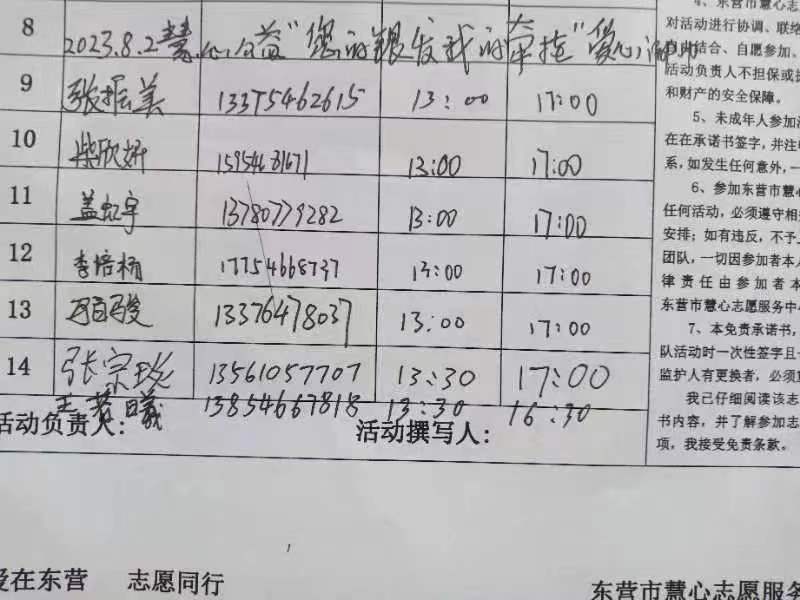 8 2023.8.2慧心公益“您的银发我的牵挂”爱心
9 张振美 13375462615 13:00 17:00
10 柴欣妍 15954681671 13:00 17:00
11 盖虹宇 13780779282 13:00 17:00
12 李培楠 17754668737 13:00 17:00
13 13376478037 13:00 17:00
14 张宗珑 13561057707 13:30 17:00
王若曦 13854667818 13:30 16:30
活动负责人: 活动撰写人:
4、东营市慧心志
对活动进行协调、联络
自由结合、自愿参加、
活动负责人不担保或
和财产的安全保障。
5、未成年人参加
在在承诺书签字,并注
系,如发生任何意外,一
6、参加东营市慧心
任何活动,必须遵守相
安排;如有违反,不予
团队,一切因参加者本人
律责任由参加者本
东营市慧心志愿服务中
7、本免责承诺书,
队活动时一次性签字且
监护人有更换者,必须
我已仔细阅读该志
书内容,并了解参加志
项,我接受免责条款。
爱在东营 志愿同行
东营市慧心志愿服务